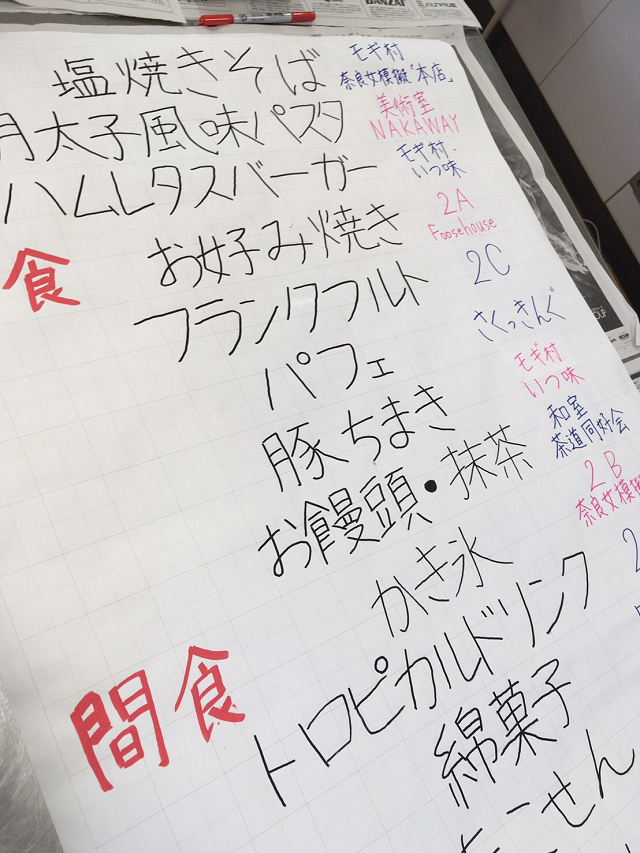 塩焼きそば
モギ村
奈良女模擬「本店」
明太子風味パスタ
美術室
NAKAWAY
ハムレタスバーガー
モギ村・
いつ味
食
お好み焼き
2A
Foosehouse
フランクフルト
2C
パフェ
さくっきんぐ
豚ちまき
モギ村
いつ味
お饅頭・抹茶
和室
茶道同好会
かき氷
2B
奈良女模擬
間食
トロピカルドリンク
綿菓子